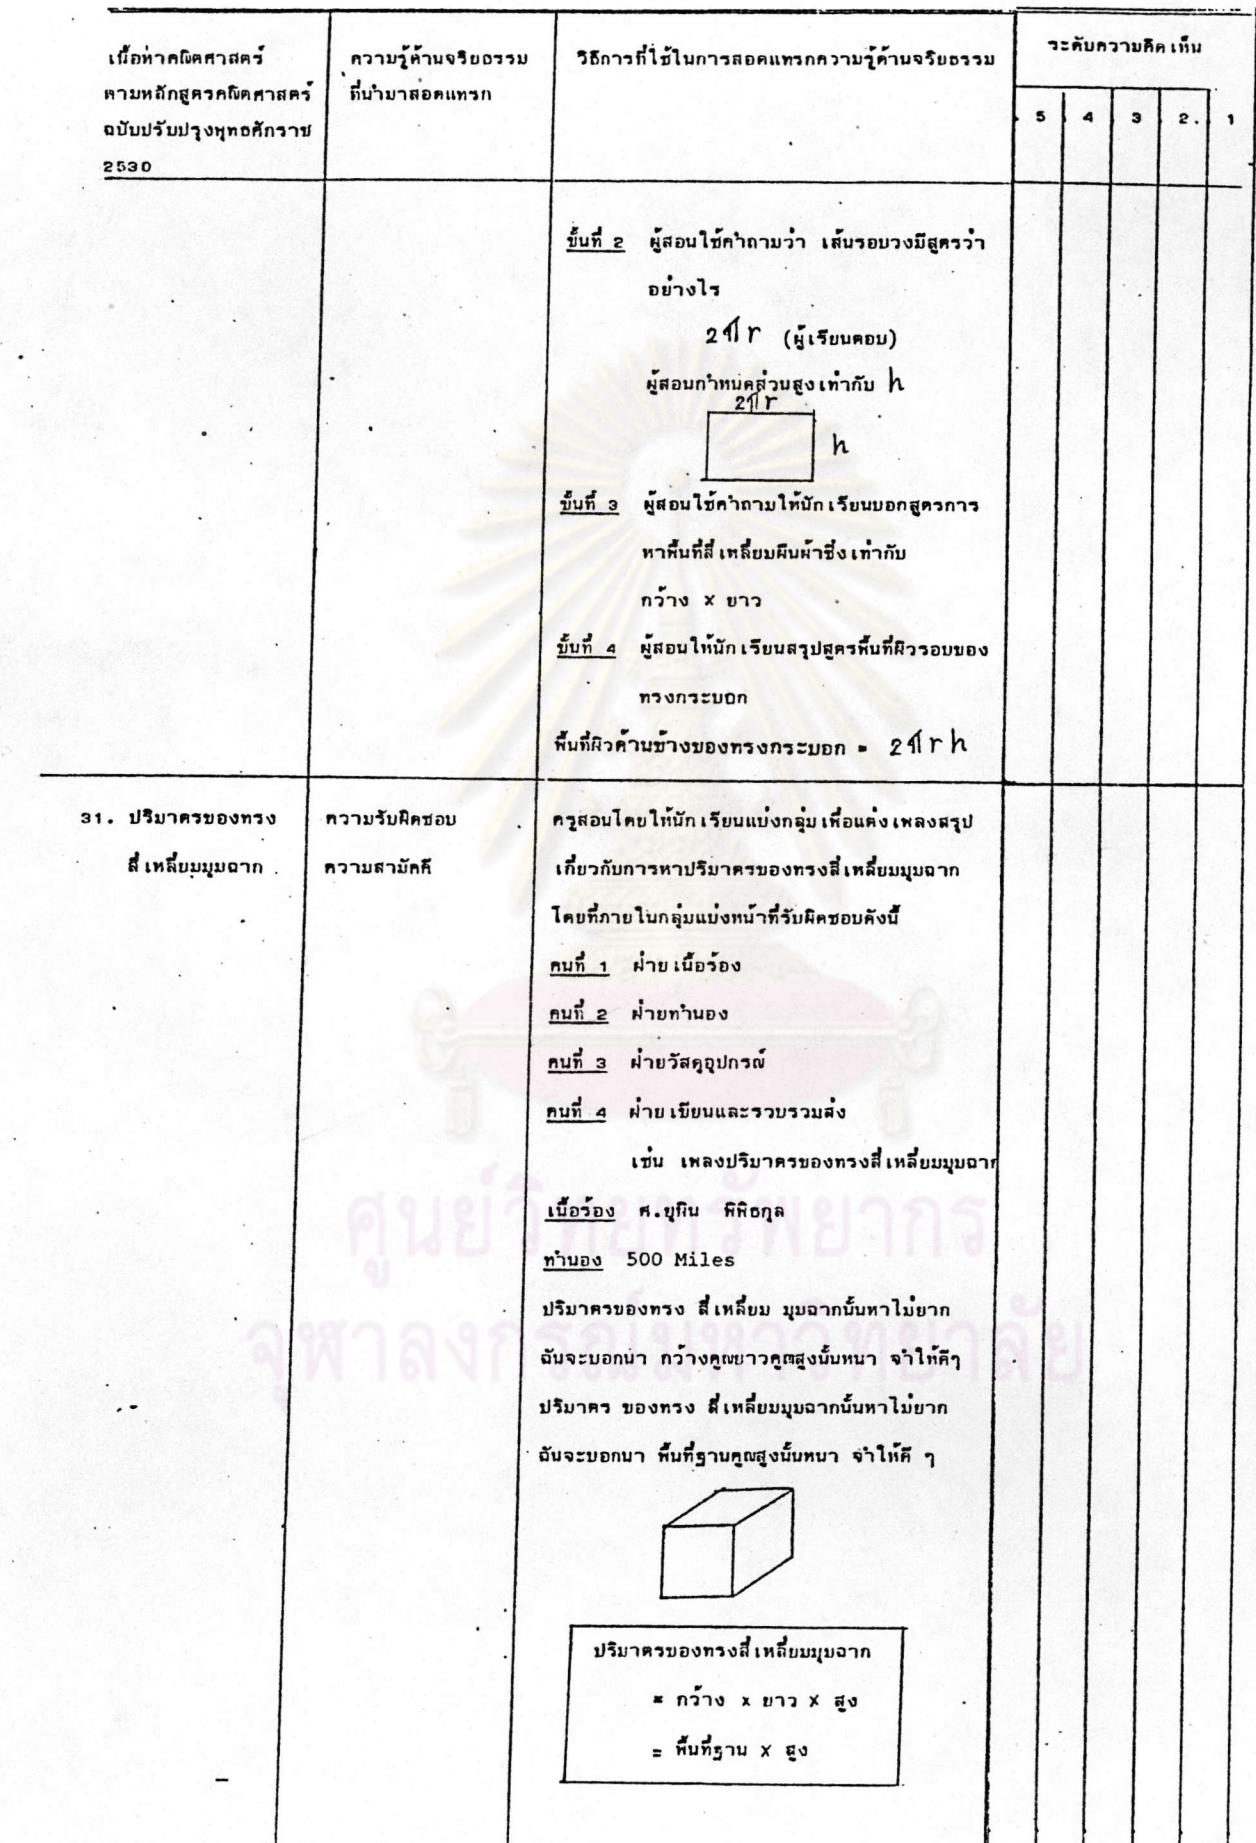 เนื้อหาคณิตศาสตร์
ตามหลักสูตรคณิตศาสตร์
ฉบับปรับปรุงพุทธศักราช
2530
ความรู้ด้านจริยธรรม
ที่นำมาสอดแทรก
วิธีการที่ใช้ในการสอดแทรกความรู้ด้านจริยธรรม
ระดับความคิดเห็น
5 4 3 2. 1
ขั้นที่ 2 ผู้สอนใช้คำถามว่า เส้นรอบวงมีสูตรว่า
อย่างไร
2πr (ผู้เรียนตอบ)
ผู้สอนกำหนดส่วนสูงเท่ากับ h
2πr
h
ขั้นที่ 3 ผู้สอนใช้คำถามให้นักเรียนบอกสูตรการ
หาพื้นที่สี่เหลี่ยมผืนผ้าซึ่งเท่ากับ
กว้าง × ยาว
ขั้นที่ 4 ผู้สอนให้นักเรียนสรุปสูตรพื้นที่ผิวรอบของ
ทรงกระบอก
พื้นที่ผิวด้านข้างของทรงกระบอก = 2πrh
31. ปริมาตรของทรง
สี่เหลี่ยมมุมฉาก
ความรับผิดชอบ
ความสามัคคี
ครูสอนโดยให้นักเรียนแบ่งกลุ่มเพื่อแต่งเพลงสรุป
เกี่ยวกับการหาปริมาตรของทรงสี่เหลี่ยมมุมฉาก
โดยที่ภายในกลุ่มแบ่งหน้าที่รับผิดชอบดังนี้
คนที่ 1 ฝ่ายเนื้อร้อง
คนที่ 2 ฝ่ายทำนอง
คนที่ 3 ฝ่ายวัสดุอุปกรณ์
คนที่ 4 ฝ่ายเขียนและรวบรวมส่ง
เช่น เพลงปริมาตรของทรงสี่เหลี่ยมมุมฉาก
เนื้อร้อง ศ.ยุพิน พิพิธกุล
ทำนอง 500 Miles
ปริมาตรของทรง สี่เหลี่ยม มุมฉากนั้นหาไม่ยาก
ฉันจะบอกนา กว้างคูณยาวคูณสูงนั้นหนา จำให้ดีๆ
ปริมาตร ของทรง สี่เหลี่ยมมุมฉากนั้นหาไม่ยาก
ฉันจะบอกนา พื้นที่ฐานคูณสูงนั้นหนา จำให้ดี ๆ
ปริมาตรของทรงสี่เหลี่ยมมุมฉาก
= กว้าง x ยาว x สูง
= พื้นที่ฐาน x สูง
ศูนย์วิทยทรัพยากร
จุฬาลงกรณ์มหาวิทยาลัย